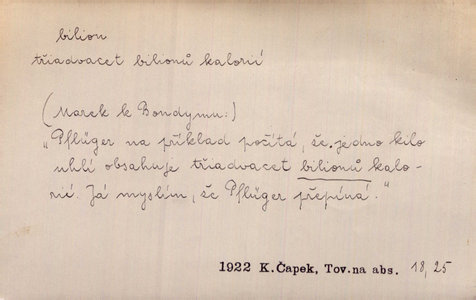 bilion
třiadvacet bilionů kalorií
(Marek k Bondymu:)
„Pflüger na příklad počítá, že jedno kilo
uhlí obsahuje třiadvacet bilionů kalo-
rií. Já myslím, že Pflüger přepíná.“
1922 K.Čapek, Tov.na abs. 18, 25